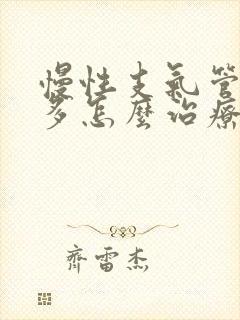 慢性支氣管
多怎麼治療
齊雷杰